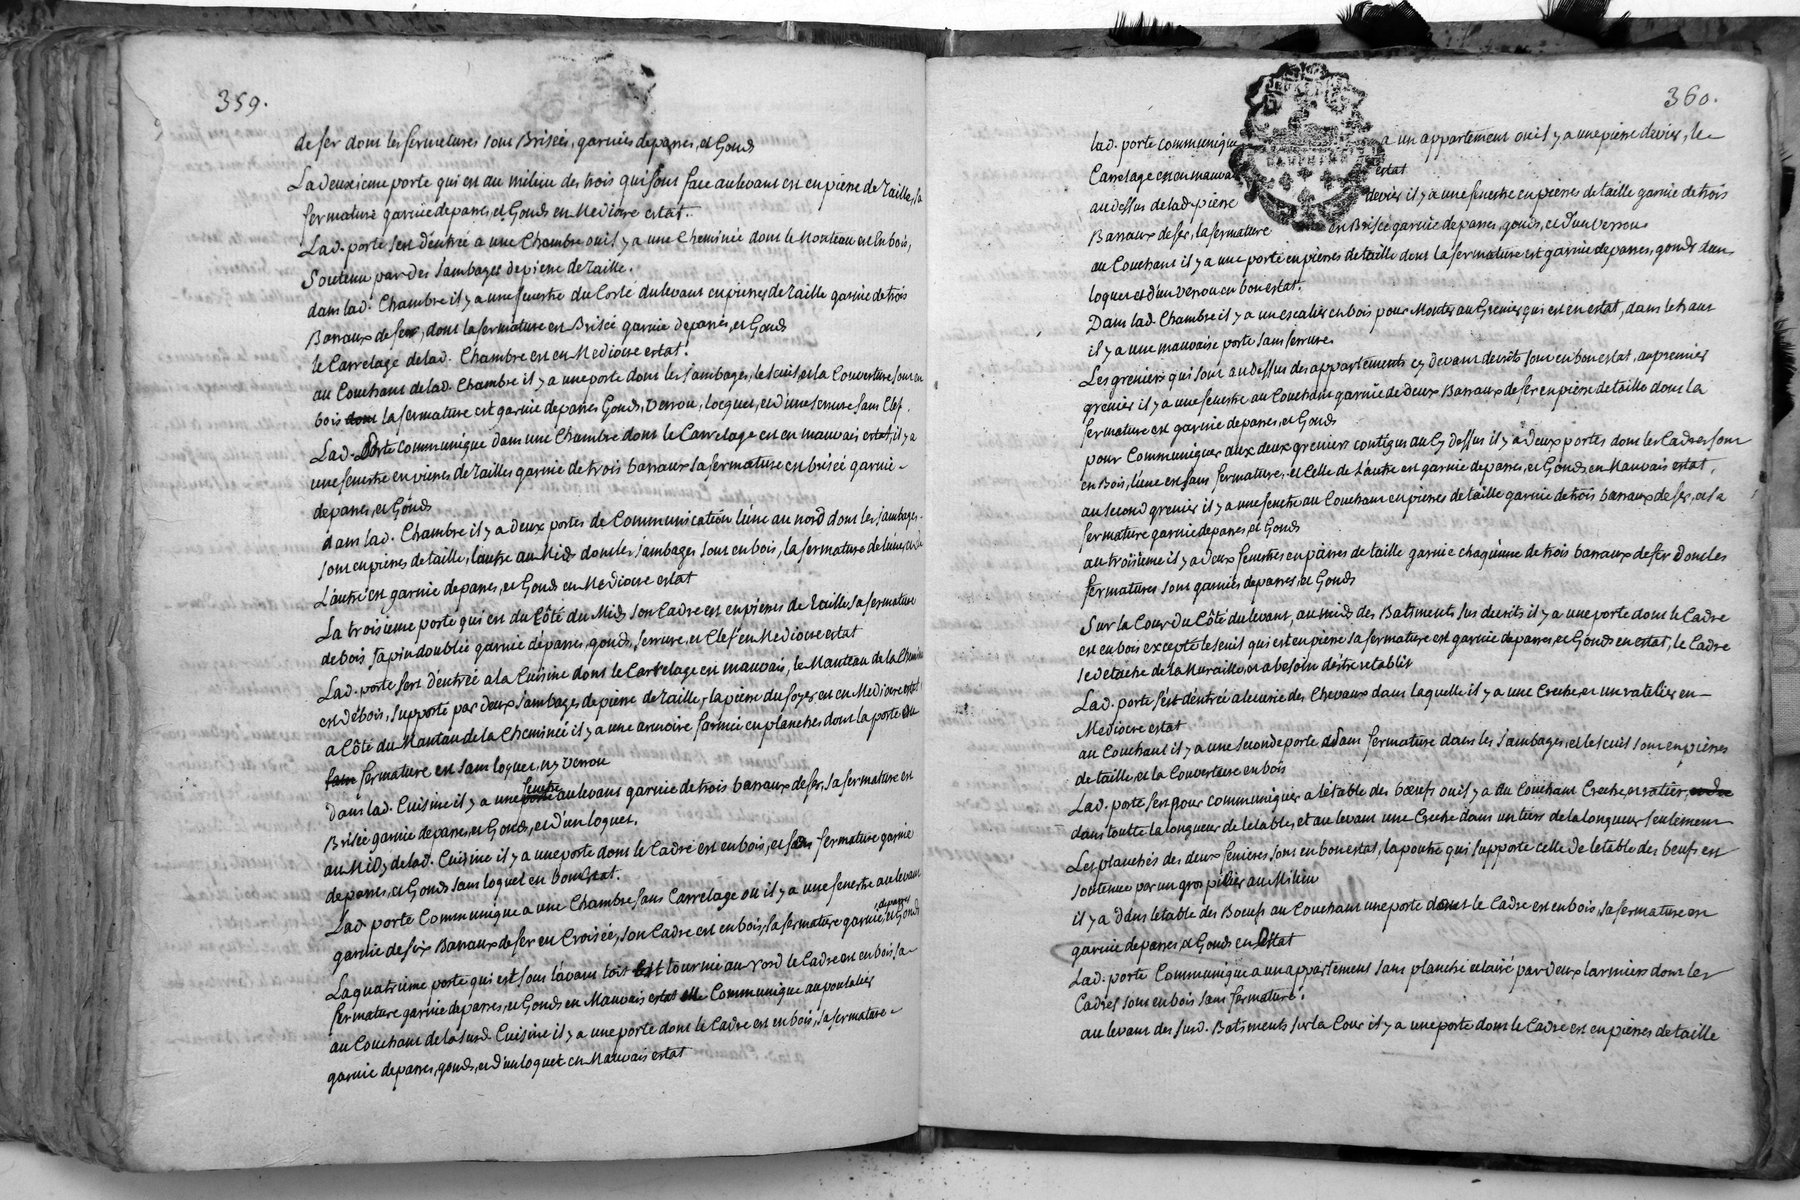 359.
de fer dont les fermetures sont Brisées, garnies de parres, et Gonds
La deuxieme porte qui est au milieu des trois qui font face au levant est en pierre de Taille, sa
fermature garnie de parres, et Gonds en Mediocre estat.
Lad. porte sert d'entrée a une Chambre ou il y a une Cheminée dont le Monteau est En bois,
Soutenu par des Jambages de pierre de Taille.
dans lad. Chambre il y a une fenestre du Corté du levant en pierres de Taille garnie de trois
Barraux de fer, dont la fermature en Brisée garnie de parres, et Gonds
le Carrelage de lad. Chambre est en Mediocre estat.
au Couchant de lad. Chambre il y a une porte dont les Jambages, le seuil, et la Couverture sont en
bois dont la fermature est garnie de parres Gonds, verrou, locquet, et d'une serrure sans Clef.
Lad. Porte communique dans une Chambre dont le Carrelage est en mauvais estat, il y a
une fenestre en pierres de Tailles garnie de trois barraux sa fermature en brisée garnie
de parres, et Gonds
dans lad. Chambre il y a deux portes de Communication l'une au nord dont les jambages
sont en pierres de taille, l'autre au Midy dont les jambages sont en bois, la fermature de l'une, et de
L'autre est garnie de parres, et Gonds en Mediocre estat
La troisieme porte qui est du Côté du Midy son Cadre est en pierres de Taille, sa fermature
de bois sapin doublée garnie de parres, gonds, serrure, et Clef en Mediocre estat
Lad. porte sert d'entrée a la Cuisine dont le Carrelage est mauvais, le Manteau de la Cheminée
est de bois, supporté par deux jambages de pierre de Taille, la pierre du foyer est en Mediocre estat
a Côté du Manteau de la Cheminée il y a une armoire farmée en planches dont la porte
sans fermature est sans loquet, ny verrou
dans lad. Cuisine il y a une porte fenestre au levant garnie de trois barraux de fer, sa fermature est
Brisée garnie de parres, et Gonds, et d'un loquet.
au Midy de lad. Cuisine il y a une porte dont le Cadre est en bois, et sa fermature garnie
de parres, et Gonds sans loquet en bon estat.
Lad. porte Communique a une Chambre sans Carrelage ou il y a une fenestre au levant
garnie de six Barraux de fer en Croisée, son Cadre est en bois, sa fermature garnie de parres, et Gonds
La quatrieme porte qui est sous l'avant toit est tournée au Nord le Cadre est en bois sa
fermature garnie de parres, et Gonds en Mauvais estat elle Communique au poulalier
au Couchant de la susd. Cuisine il y a une porte dont le Cadre est en bois, sa fermature
garnie de parres, gonds, et d'un loquet en Mauvais estat
360.
lad. porte communique a un appartement ou il y a une pierre devier, le
Carrelage est en mauvais estat
au dessus de lad. pierre devier il y a une fenestre en pierre de taille garnie de trois
Barraux de fer, la fermature en Brisée garnie de parres, gonds, et d'un verrou
au Couchant il y a une porte en pierres de taille dont la fermature est garnie de parres, gonds d'un
loquet et d'un verrou en bon estat.
Dans lad. Chambre il y a un escalier en bois pour Monter au Grenier qui est en estat, dans le haut
il y a une mauvaise porte sans serrure
Les greniers qui sont au dessus des appartements cy devant decrits sont en bon estat, au premier
grenier il y a une fenestre au Couchant garnie de deux Barraux de fer en pierre de taille dont la
fermature est garnie de parres, et Gonds
pour Communiquer aux deux greniers contigus au Cy dessus il y a deux portes dont les Cadres sont
en Bois, l'une est sans fermature, et Celle de L'autre est garnie de parres, et Gonds en Mauvais estat.
au second grenier il y a une fenestre au Couchant en pierres de taille garnie de trois barraux de fer, et sa
fermature garnie de parres et Gonds
au troisieme il y a deux fenestres en pierres de taille garnie chaqu'une de trois barraux de fer dont les
fermatures sont garnies de parres, et Gonds
Sur la Cour du Côté du levant, au midy des Batiments sus decrits il y a une porte dont le Cadre
est en bois excepté le seuil qui est en pierre sa fermature est garnie de parres, et Gonds en estat, le Cadre
se detache de la Muraille, et a besoin d'être retablit
Lad. porte sert d'entrée a l'ecurie des Chevaux dans laquelle il y a une Creche, et un ratelier en
Mediocre estat
au Couchant il y a une seconde porte sans fermature dont les Jambages, et le seuil sont en pierres
de taille, et la Couverture en bois
Lad. porte sert pour communiquer a l'etable des bœufs ou il y a au Couchant Creche, et ratier, et du
dans toutte la longueur de letable, et au levant une Creche dans un tiers de la longueur seulement
Les planchés des deux fenieres sont en bon estat, la poutre qui supporte celle de letable des beufs est
soutenue par un gros pilier au Milieu
il y a dans letable des Bœufs au Couchant une porte dont le Cadre est en bois, sa fermature est
garnie de parres, et Gonds en Estat
Lad. porte Communique a un appartement sans planché eclairé par deux larmiers dont les
Cadres sont en bois sans fermature.
au levant des susd. Batiments sur la Cour il y a une porte dont le Cadre est en pierres de taille